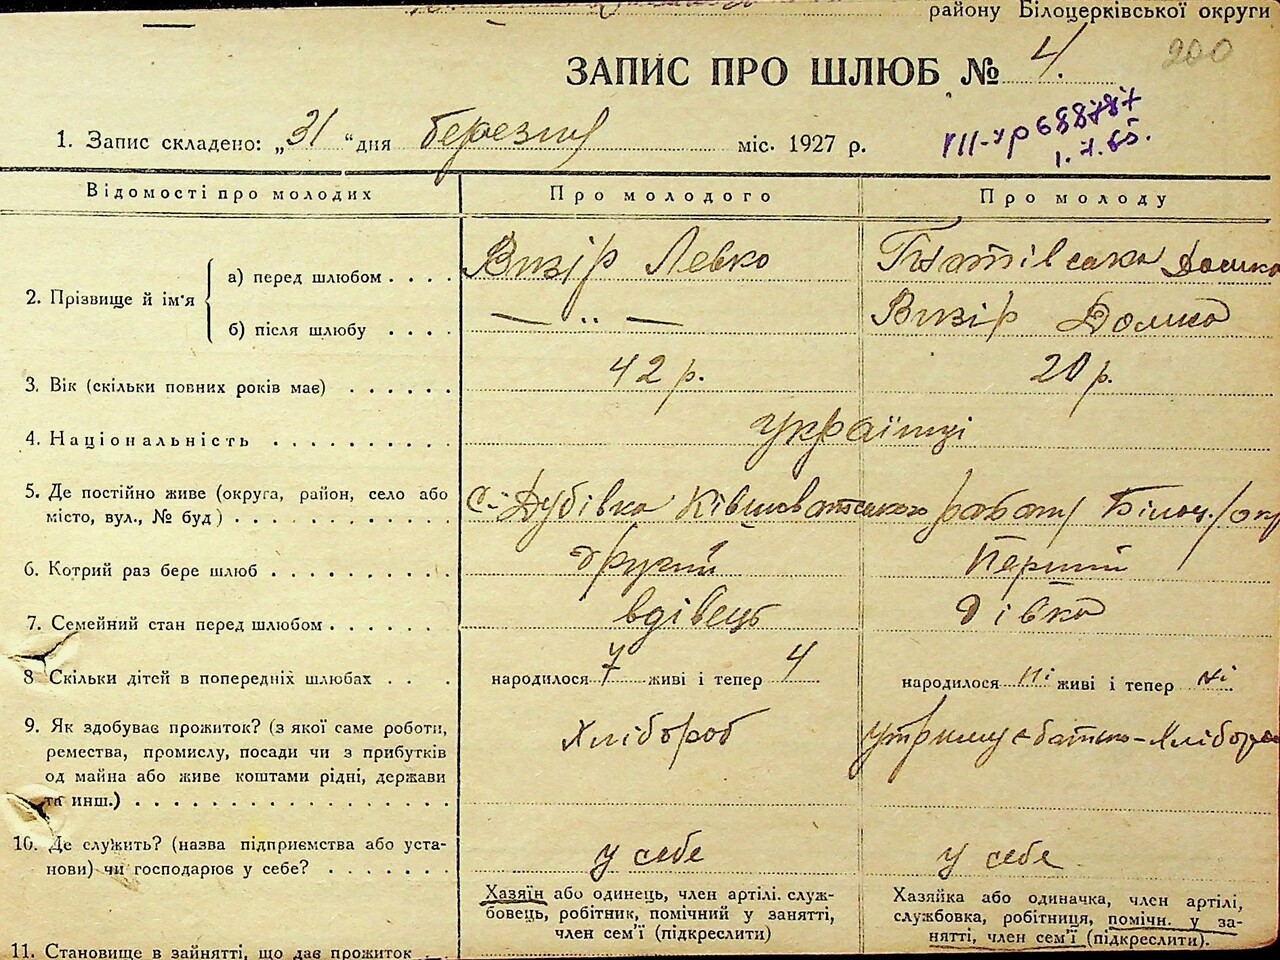 району Білоцерківської округи
200
ЗАПИС ПРО ШЛЮБ № 4.
1. Запис складено: „31 “ дня березня міс. 1927 р.
1.7.65.
Відомості про молодих
Про молодого
Про молоду
2. Прізвище й ім'я
а) перед шлюбом . . . .
Визір Левко
Домка
б) після шлюбу . . . .
— „ —
Визір Домка
3. Вік (скільки повних років має) . . . . . .
42 р.
20 р.
4. Національність . . . . . . . . . .
українці
5. Де постійно живе (округа, район, село або
місто, вул., № буд) . . . . . . . . . . . .
с. Дубівка Ківшоватського району Білоц. окр
6. Котрий раз бере шлюб . . . . . . . . . .
другий
Перший
7. Семейний стан перед шлюбом . . . . . .
вдівець
дівка
8 Скільки дітей в попередніх шлюбах . . .
народилося 7 живі і тепер 4
народилося ні живі і тепер ні
9. Як здобуває прожиток? (з якої саме роботи,
ремества, промислу, посади чи з прибутків
од майна або живе коштами рідні, держави
та инш.) . . . . . . . . . . . . . . . . . .
Хлібороб
утримує батько - Хлібороб
10. Де служить? (назва підприємства або уста-
нови) чи господарює у себе? . . . . . . .
у себе
у себе
Хазяїн або одинець, член артілі. служ-
бовець, робітник, помічний у занятті,
член сем'ї (підкреслити)
Хазяйка або одиначка, член артілі,
службовка, робітниця, помічн. у за-
нятті, член сем'ї (підкреслити).
11. Становище в зайнятті, що дає прожиток . .